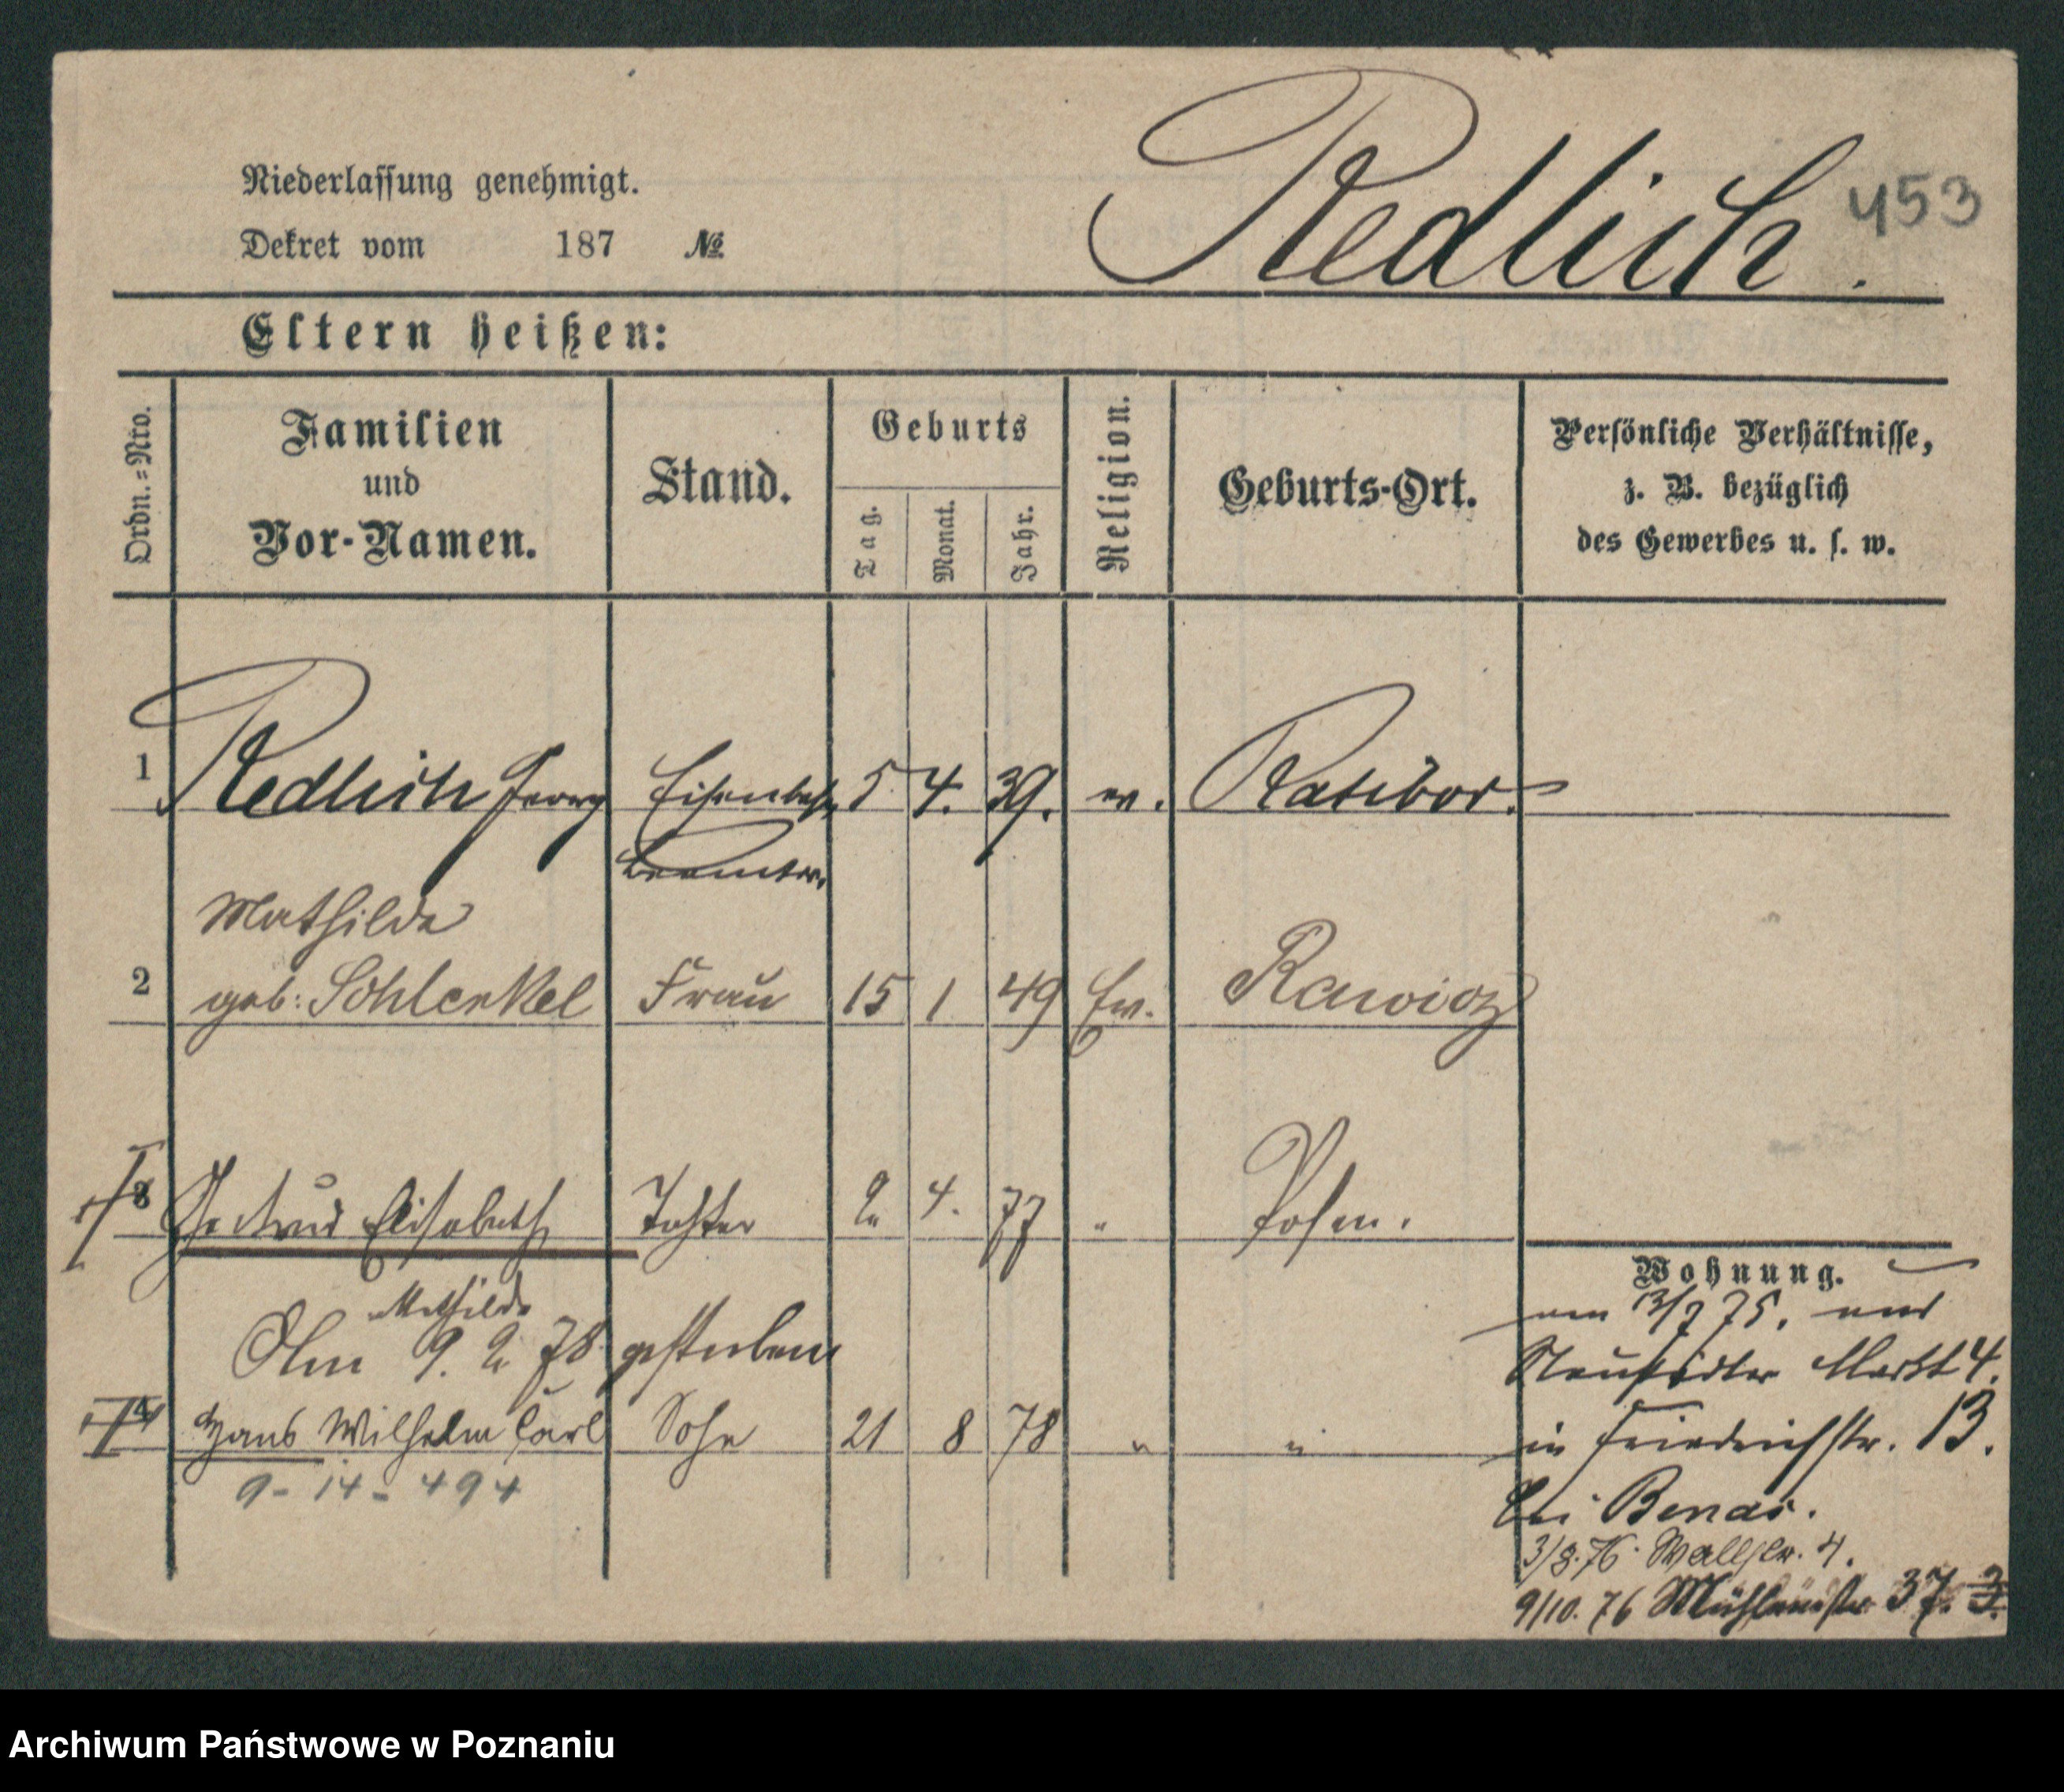 Redlich.
453
Niederlassung genehmigt.
Dekret vom 187 №
Eltern heißen:
Ordn.=Nro.
Familien
und
Vor-Namen.
Stand.
Geburts
Tag.
Monat.
Jahr.
Religion.
Geburts-Ort.
Persönliche Verhältnisse,
z. B. bezüglich
des Gewerbes u. s. w.
1 Redlich Georg Eisenbahn 5. 4. 39. ev. Ratibor.
Beamter.
Mathilde
2 geb: Schlenkel Frau 15 1 49 Ev. Rawicz
3 Gertrud Elisabeth Tochter 2 4. 77 " Posen.
Mathilde
Am 9. 2. 78 gestorben
4 Hans Wilhelm Carl Sohn 21 8 78 " "
9 - 14 - 494
Wohnung.
am 13/7 75. aus
Neustädter Markt 4.
in Friedrichstr. 13.
bei Benas.
3/8. 76. Wallstr. 4.
9/10. 76 Mühlenstr 37. 3.
Archiwum Państwowe w Poznaniu